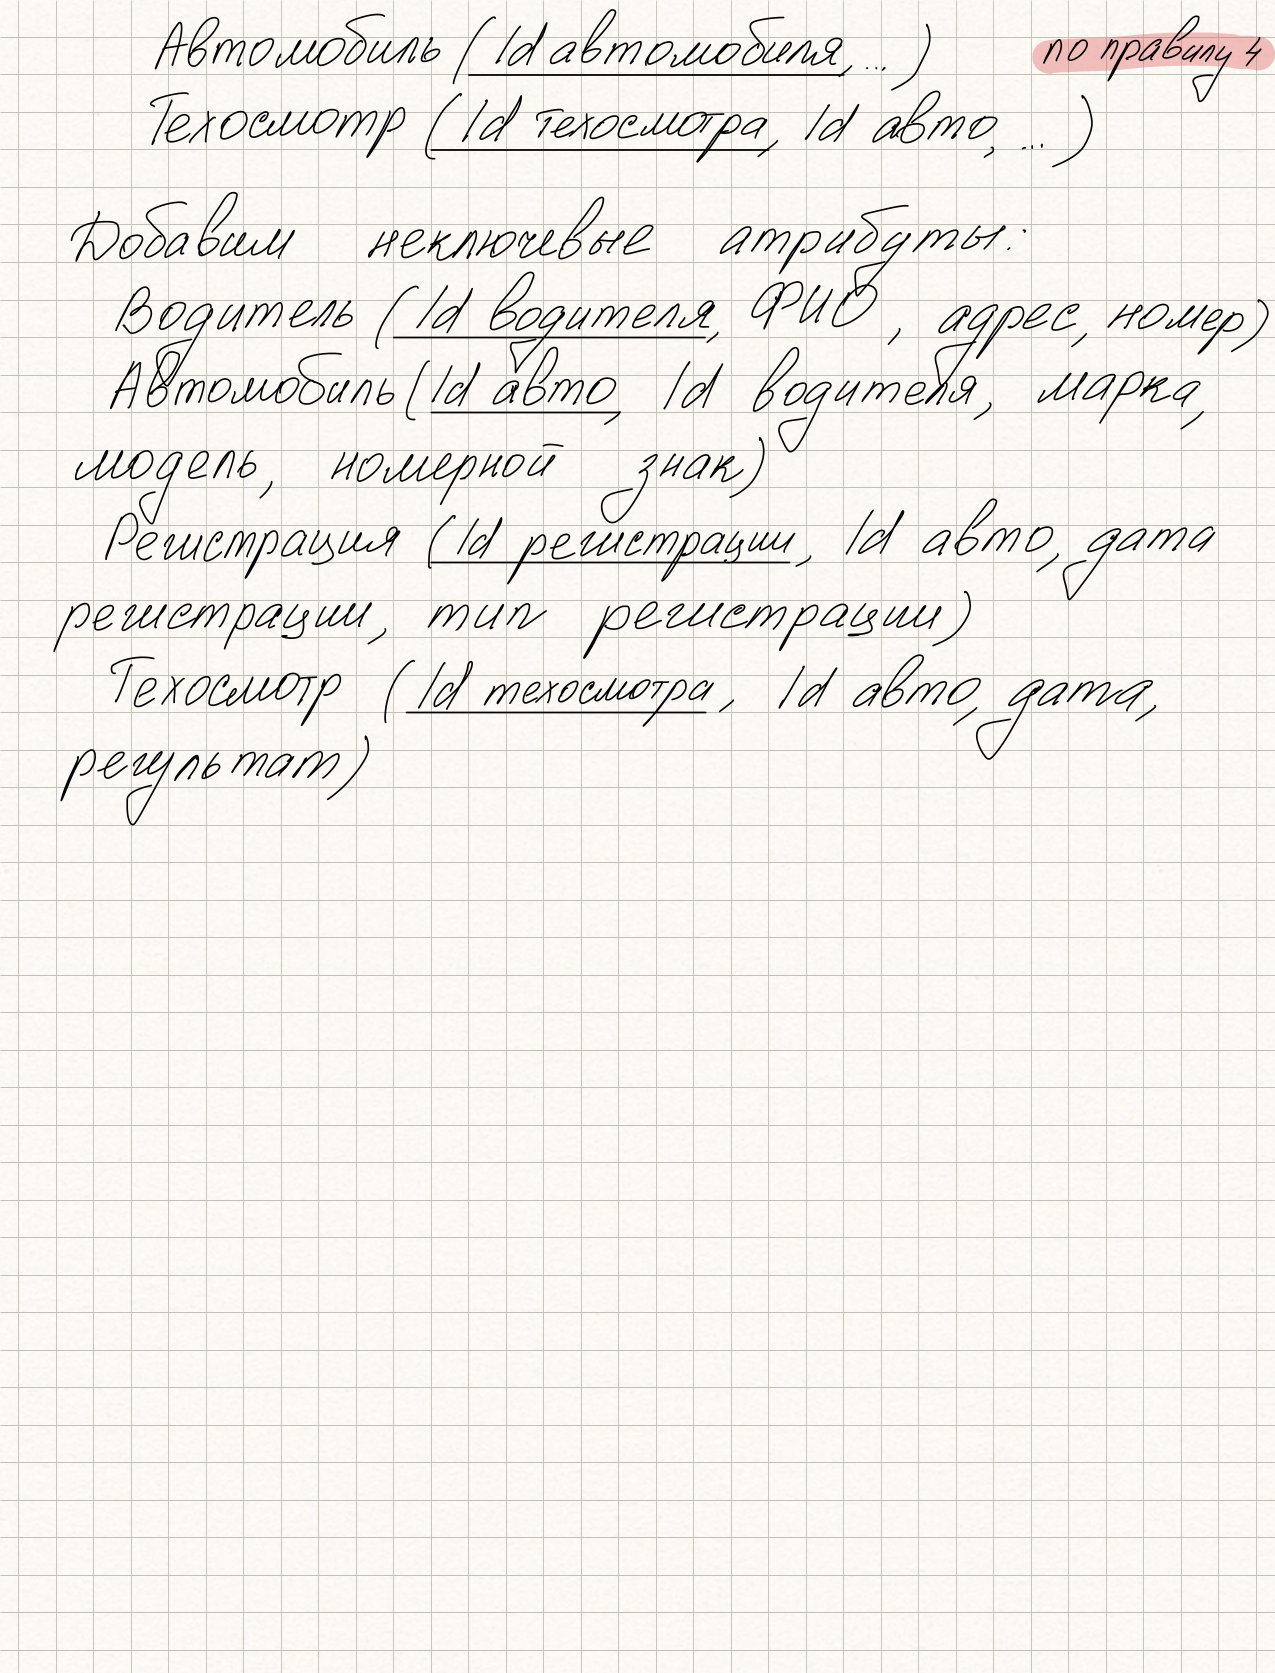 Автомобиль (Id автомобиля, ...) по правилу 4
Техосмотр (Id техосмотра, Id авто, ...)
Добавим неключевые атрибуты:
Водитель (Id водителя, ФИО, адрес, номер)
Автомобиль (Id авто, Id водителя, марка,
модель, номерной знак)
Регистрация (Id регистрации, Id авто, дата
регистрации, тип регистрации)
Техосмотр (Id техосмотра, Id авто, дата,
результат)